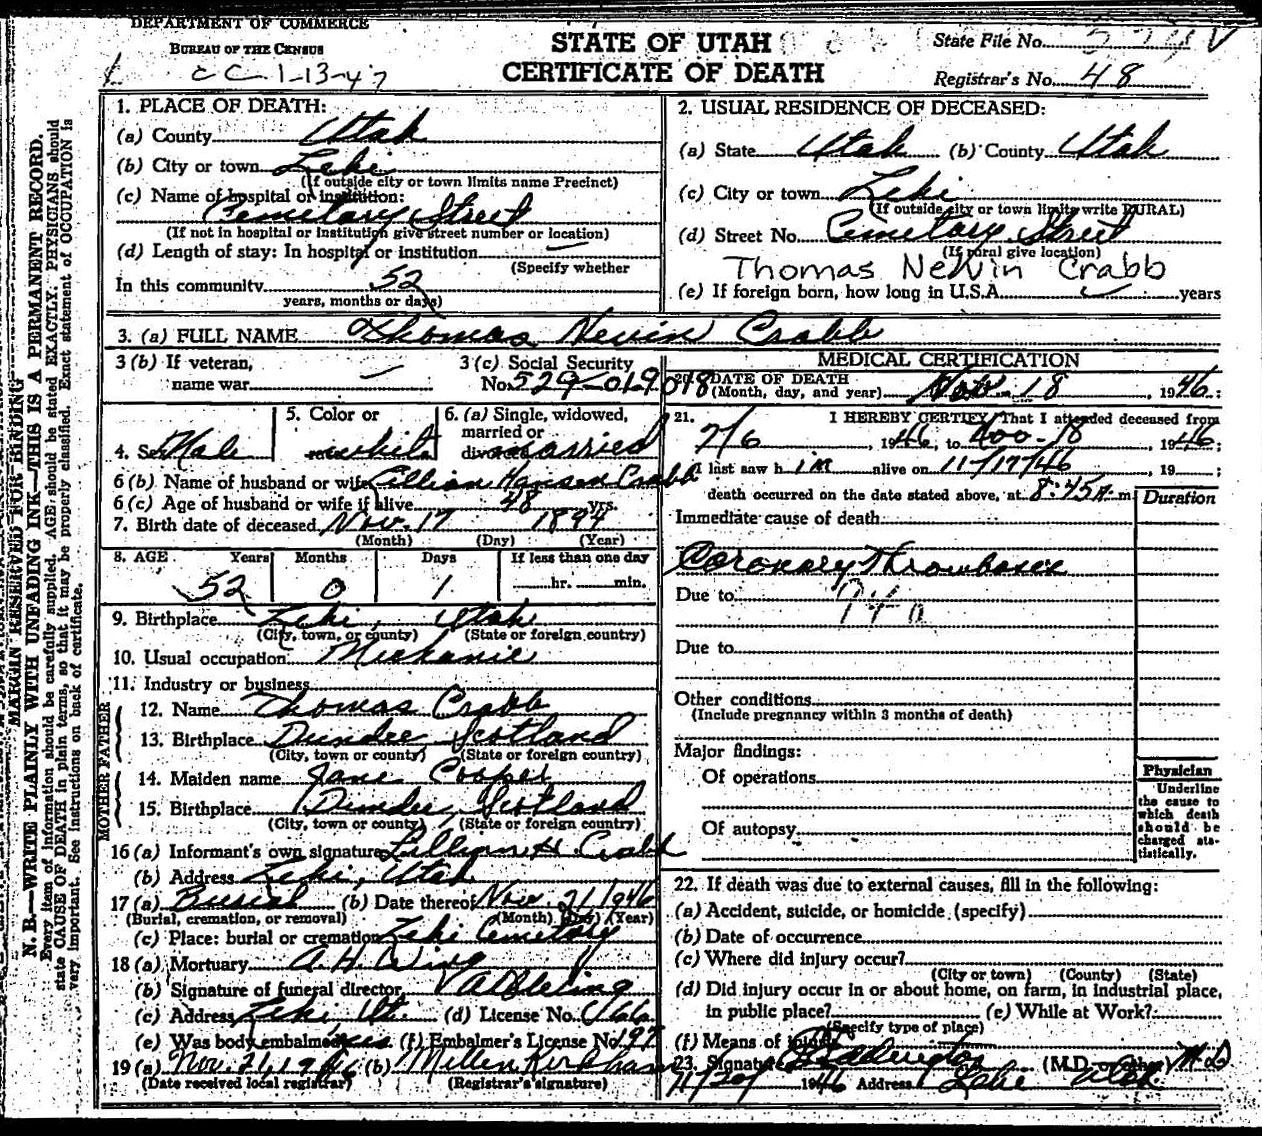 DEPARTMENT OF COMMERCE
BUREAU OF THE CENSUS
CC 1-13-47
STATE OF UTAH
CERTIFICATE OF DEATH
State File No.
Registrar's No. 48
MARGIN RESERVED FOR BINDING
N. B.—WRITE PLAINLY WITH UNFADING INK—THIS IS A PERMANENT RECORD.
Every item of information should be carefully supplied. AGE should be stated EXACTLY. PHYSICIANS should
state CAUSE OF DEATH in plain terms, so that it may be properly classified. Exact statement of OCCUPATION is
very important. See instructions on back of certificate.
1. PLACE OF DEATH:
(a) County Utah
(b) City or town Lehi
(If outside city or town limits name Precinct)
(c) Name of hospital or institution:
Cemetary Street
(If not in hospital or institution give street number or location)
(d) Length of stay: In hospital or institution —
(Specify whether
In this community 52
years, months or days)
2. USUAL RESIDENCE OF DECEASED:
(a) State Utah (b) County Utah
(c) City or town Lehi
(If outside city or town limits write RURAL)
(d) Street No. Cemetary Street
(If rural give location)
Thomas Nevin Crabb
(e) If foreign born, how long in U.S.A. years
3. (a) FULL NAME Thomas Nevin Crabb
3 (b) If veteran,
name war —
3 (c) Social Security
No. 529-019018
4. Sex Male
5. Color or
race white
6. (a) Single, widowed,
married or
divorced married
6 (b) Name of husband or wife Lillian Hansen Crabb
6 (c) Age of husband or wife if alive 48 yrs.
7. Birth date of deceased Nov. 17 1894
(Month) (Day) (Year)
8. AGE Years Months Days If less than one day
52 0 1 hr. min.
9. Birthplace Lehi, Utah
(City, town, or county) (State or foreign country)
10. Usual occupation Mechanic
11. Industry or business
FATHER
12. Name Thomas Crabb
13. Birthplace Dundee Scotland
(City, town or county) (State or foreign country)
MOTHER
14. Maiden name Jane Cooper
15. Birthplace Dundee, Scotland
(City, town or county) (State or foreign country)
16 (a) Informant's own signature Lillian H Crabb
(b) Address Lehi, Utah
17 (a) Burial (b) Date thereof Nov. 21 1946
(Burial, cremation, or removal) (Month) (Day) (Year)
(c) Place: burial or cremation Lehi Cemetary
18 (a) Mortuary A. H. Wing
(b) Signature of funeral director
(c) Address Lehi, Ut. (d) License No.
(e) Was body embalmed yes (f) Embalmer's License No. 197
19 (a) Nov. 21, 1946 (b) Kirkham
(Date received local registrar) (Registrar's signature)
MEDICAL CERTIFICATION
20. DATE OF DEATH
(Month, day, and year) Nov. 18, 1946;
21. I HEREBY CERTIFY, That I attended deceased from
7/6, 1946, to Nov-18 1946;
I last saw him alive on 11/17/46, 19 ;
death occurred on the date stated above, at 8:45A m.
Duration
Immediate cause of death
Coronary Thrombosis
Due to 94a
Due to
Other conditions
(Include pregnancy within 3 months of death)
Major findings:
Of operations
Of autopsy
Physician
Underline
the cause to
which death
should be
charged sta-
tistically.
22. If death was due to external causes, fill in the following:
(a) Accident, suicide, or homicide (specify)
(b) Date of occurrence
(c) Where did injury occur?
(City or town) (County) (State)
(d) Did injury occur in or about home, on farm, in industrial place,
in public place? (e) While at Work?
(Specify type of place)
(f) Means of injury
23. Signature Eddington (M.D. or other) M.D
11/20/ 1946 Address Lehi Utah